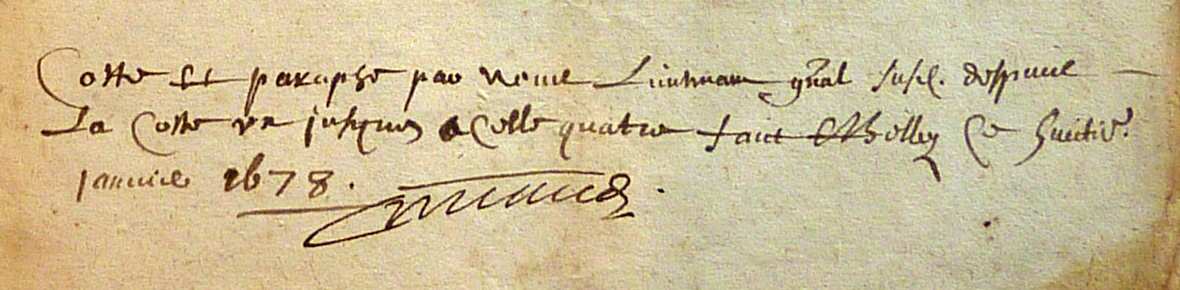 Cotte et paraphe par nous Lieutenant gnâl susd. despuis
La Cotte un jusques a Celle quatre faict a Belley Ce huictie.
janvier 1678.